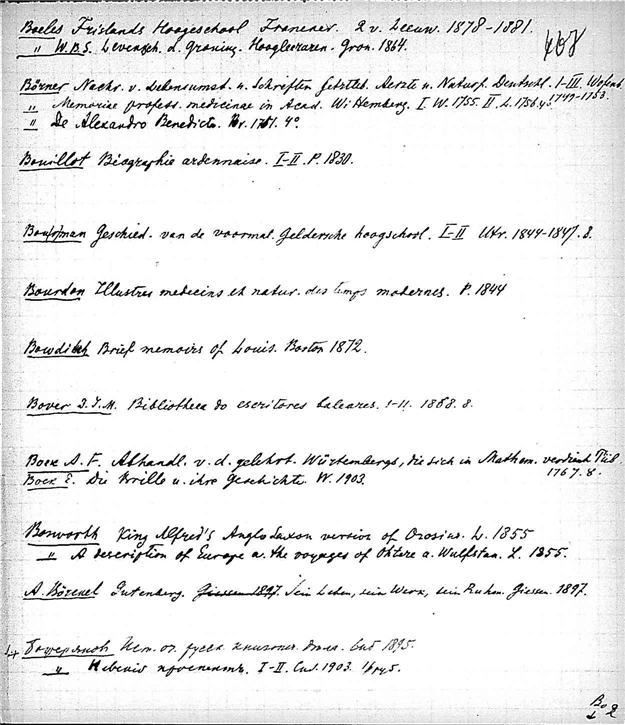 Boeles Frieslands Hoogeschool Franeker. 2 v. Leeuw. 1878-1881.
468
" W.B.S. Levenssch. d. Groning. Hoogleeraren. Gron. 1864.
Börner Nachr. v. Lebensumst. u. Schriften jetztleb. Aerzte u. Naturf. Deutschl. I-III. Wolfenb.
1749-1753.
" Memoriae profess. medicinae in Acad. Wittemberg. I. W. 1755. II. L. 1756. 4º
" De Alexandro Benedicto. Br. 1751. 4º
Bouillot Biographie ardennaise. I-II. P. 1830.
Bouman Geschied. van de voormal. Geldersche hoogschool. I-II Utr. 1844-1847. 8.
Bourdon Illustres medecins et natur. des temps modernes. P. 1844
Bowditch Brief memoirs of Louis. Boston 1872.
Bover J.J.M. Bibliotheca do escritores baleares. I-II. 1868. 8.
Bock A.F. Abhandl. v. d. gelehrt. Würtembergs, die sich in Mathem. verdient Tüb.
1767. 8.
Bock E. Die Brille u. ihre Geschichte W. 1903.
Bosworth King Alfred's Anglo Saxon version of Orosius. L. 1855
" A description of Europe a. the voyages of Ohtere a. Wulfstan. L. 1855.
A. Börckel Gutenberg. Giessen 1897. Sein Leben, sein Werk, sein Ruhm. Giessen. 1897.
Божеряновъ Ист. оч. русск. книгопеч. дела. Спб 1895.
" Невскій проспектъ. I-II. Спб. 1903.
Bo
2